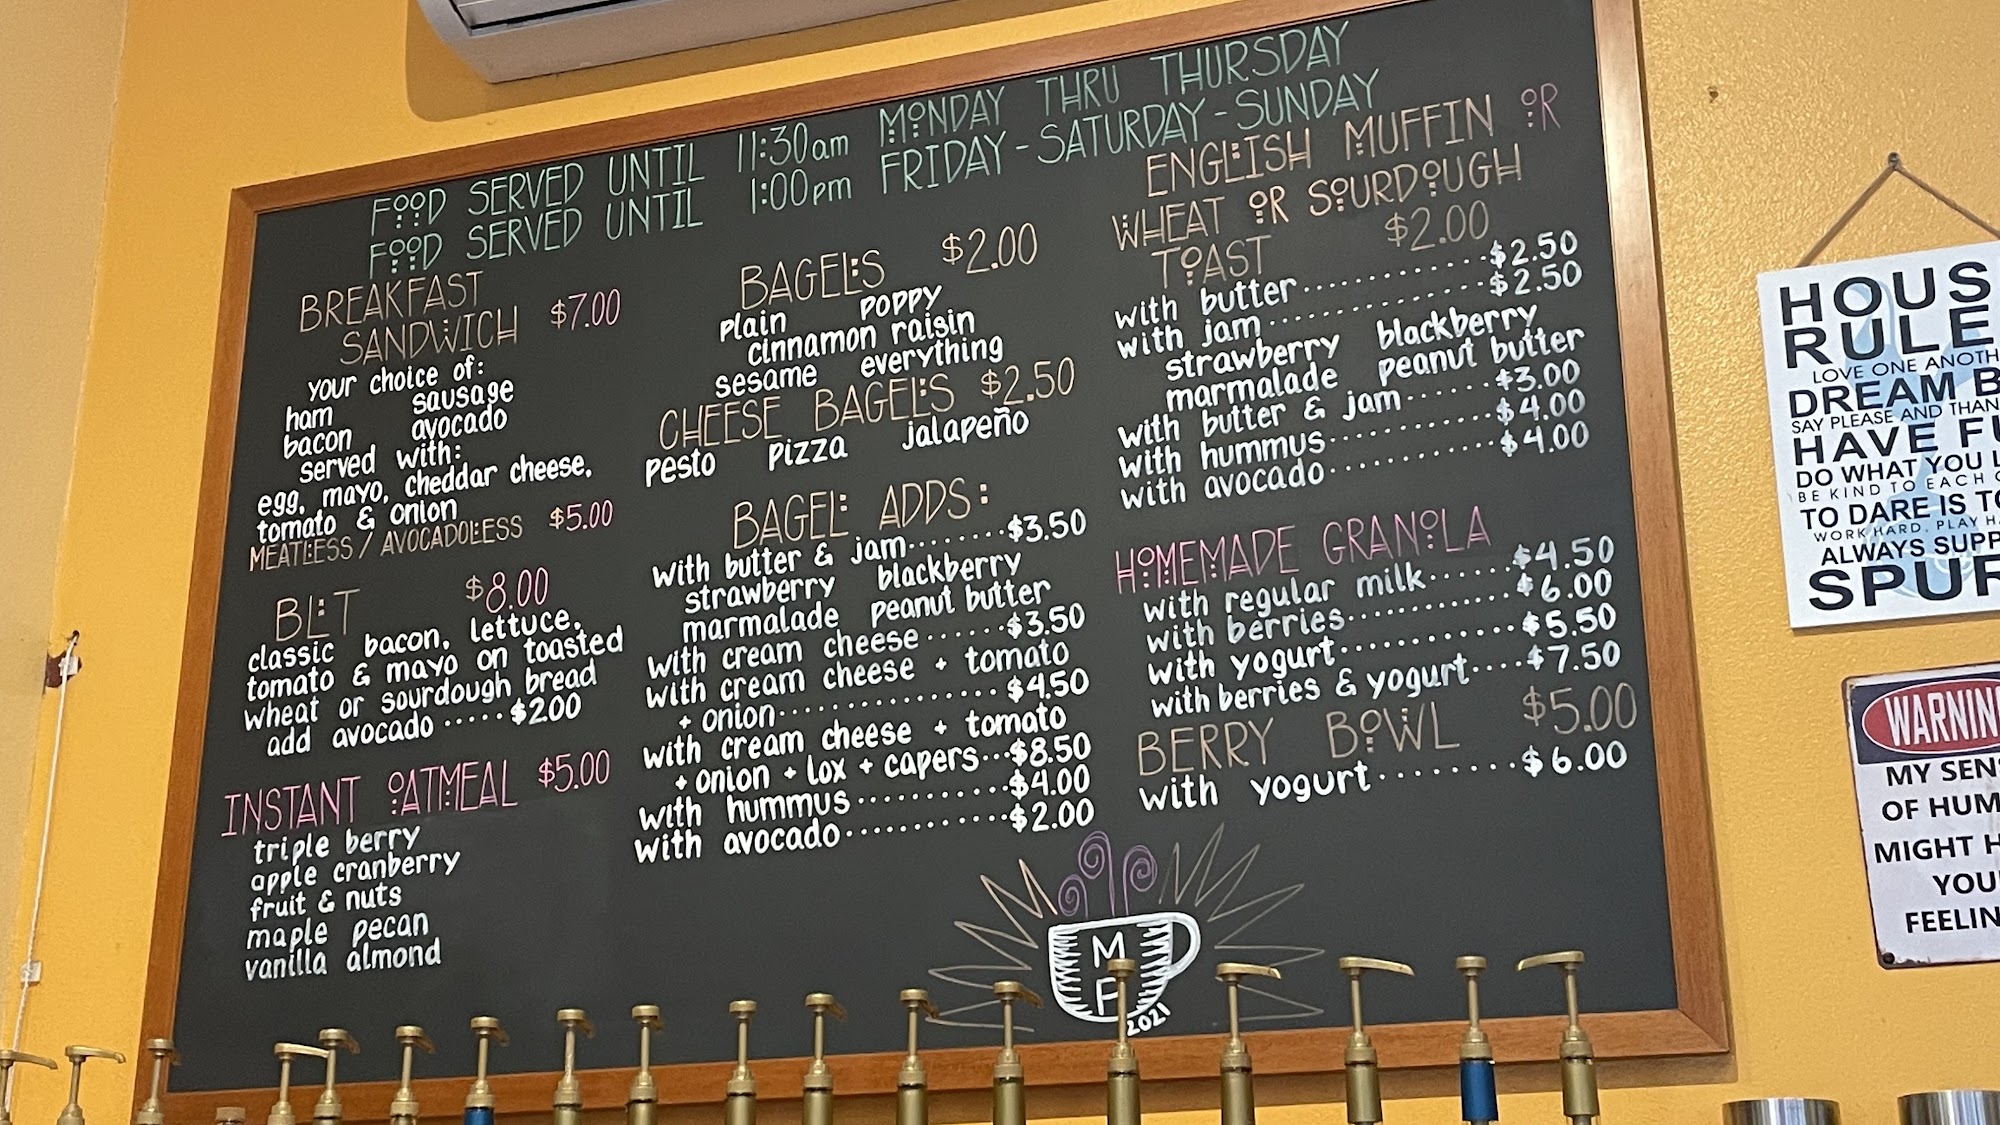 FOOD SERVED UNTIL 11:30am MONDAY THRU THURSDAY
FOOD SERVED UNTIL 1:00pm FRIDAY - SATURDAY - SUNDAY
BREAKFAST
SANDWICH $7.00
your choice of:
ham sausage
bacon avocado
served with:
egg, mayo, cheddar cheese,
tomato & onion
MEATLESS / AVOCADOLESS $5.00
BLT $8.00
classic bacon, lettuce,
tomato & mayo on toasted
wheat or sourdough bread
add avocado ····· $2.00
INSTANT OATMEAL $5.00
triple berry
apple cranberry
fruit & nuts
maple pecan
vanilla almond
BAGELS $2.00
plain poppy
cinnamon raisin
sesame everything
CHEESE BAGELS $2.50
pesto pizza jalapeño
BAGEL ADDS:
with butter & jam........$3.50
strawberry blackberry
marmalade peanut butter
with cream cheese.......$3.50
with cream cheese + tomato
+ onion.................$4.50
with cream cheese + tomato
+ onion + lox + capers...$8.50
with hummus............$4.00
with avocado............$2.00
ENGLISH MUFFIN OR
WHEAT OR SOURDOUGH
TOAST $2.00
with butter..............$2.50
with jam................$2.50
strawberry blackberry
marmalade peanut butter
with butter & jam......$3.00
with hummus............$4.00
with avocado............$4.00
HOMEMADE GRANOLA
with regular milk......$4.50
with berries............$6.00
with yogurt.............$5.50
with berries & yogurt....$7.50
BERRY BOWL $5.00
with yogurt.........$6.00
M
P
2021
HOUS
RULE
LOVE ONE ANOTH
DREAM B
SAY PLEASE AND THAN
HAVE FU
DO WHAT YOU L
BE KIND TO EACH O
TO DARE IS TO
WORK HARD. PLAY HA
ALWAYS SUPP
SPUR
WARNIN
MY SENS
OF HUM
MIGHT H
YOU
FEELIN